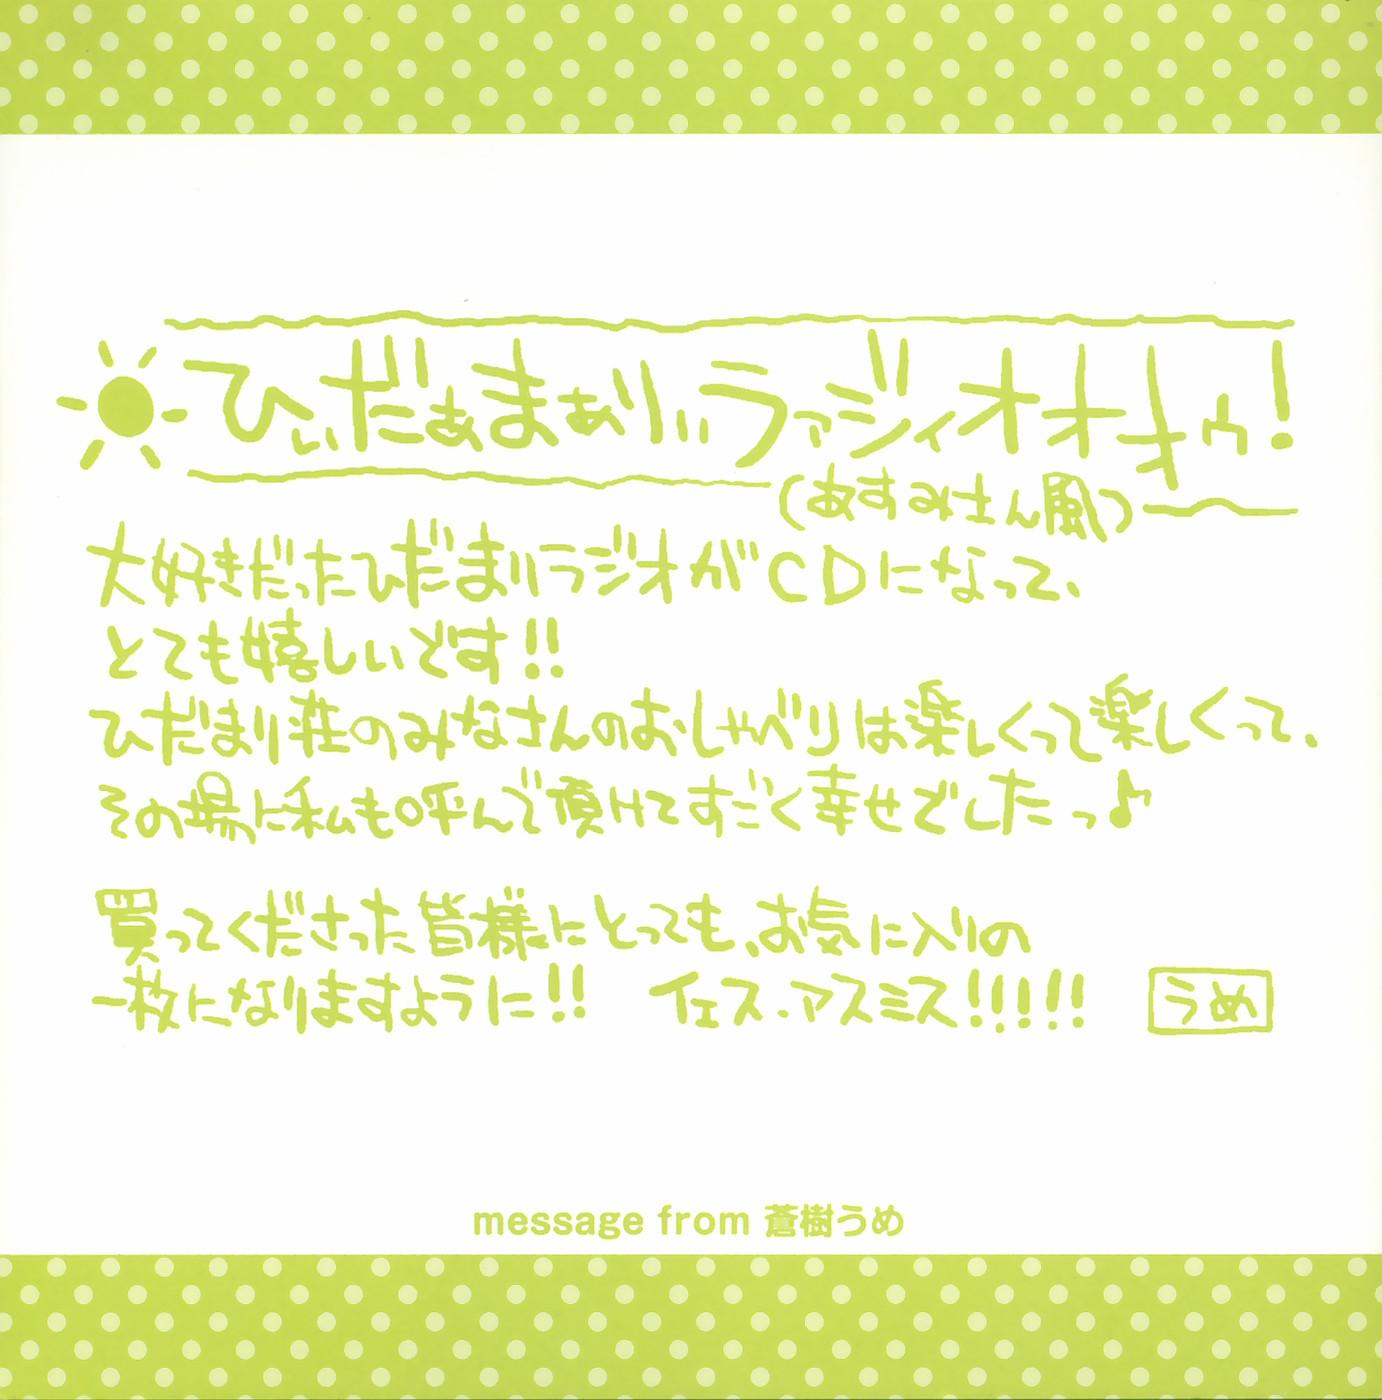 ひぃだぁまぁりぃラァジィオオオゥ!
(あすみさん風)
大好きだったひだまりラジオがCDになって、
とても嬉しいです!!
ひだまり荘のみなさんのおしゃべりは楽しくって楽しくって、
その場に私も呼んで頂けてすごく幸せでしたっ♪
買ってくださった皆様にとっても、お気に入りの
一枚になりますように!! イエス・アスミス!!!!! うめ
message from 蒼樹うめ